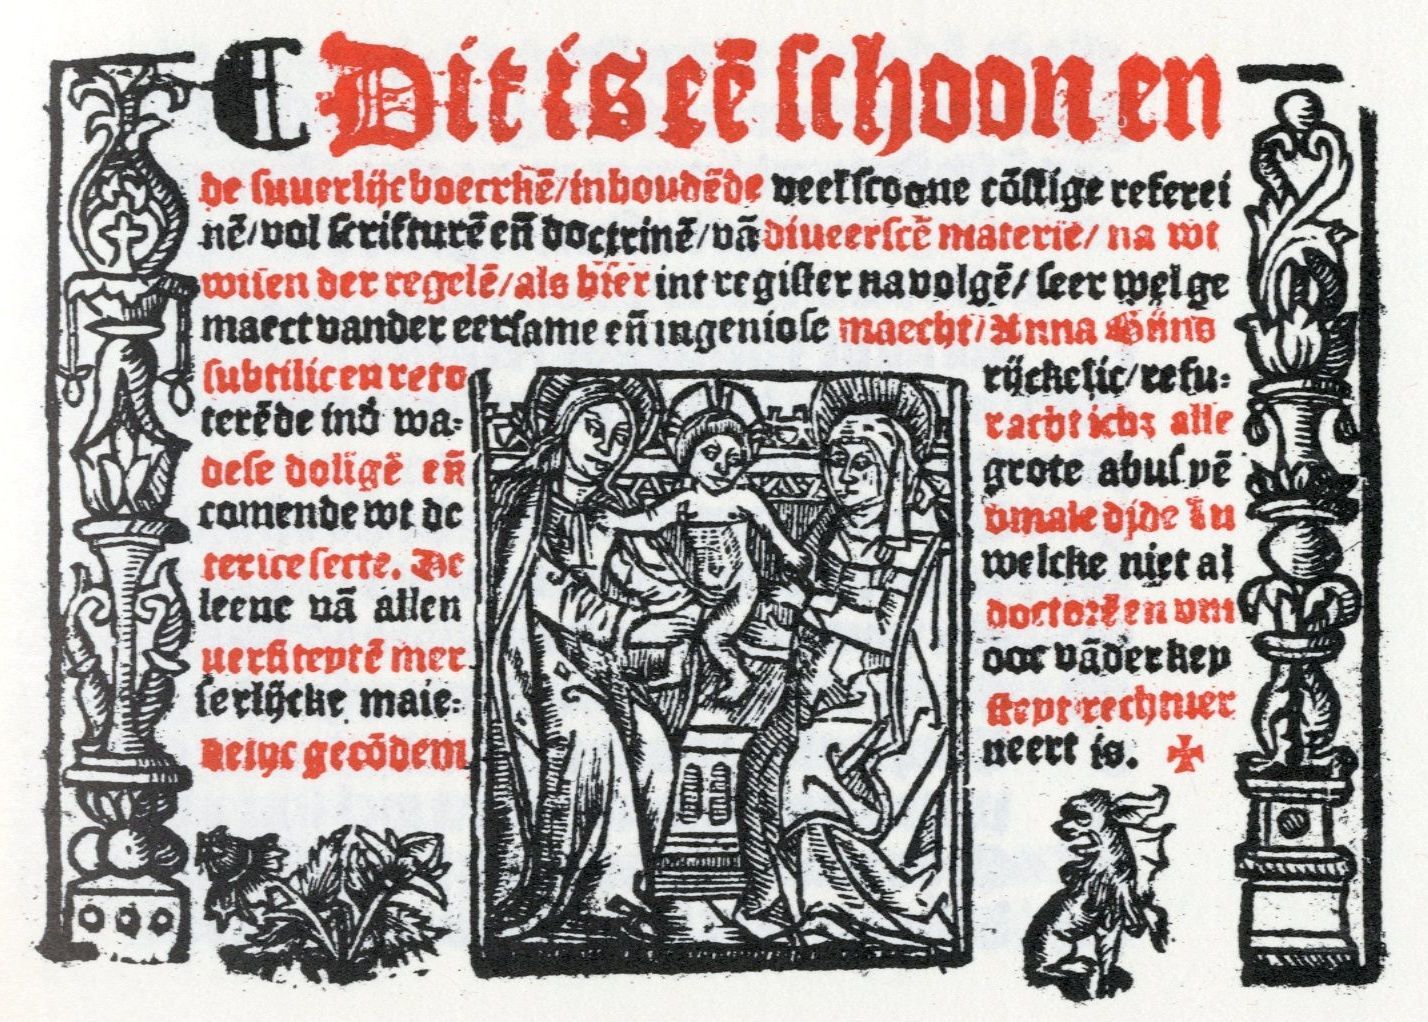 Dit is eē schoon en
de suuerlijc boecrkē/inhoudēde veel scoone cōstige referei
nē/vol scrifturē eñ doctrinē/vā diueerscē materiē/ na wt
wijsen der regelē/als hier int register na volgē/ seer wel ge
maect vander eersame eñ ingeniose maecht/Anna Bijns
subtilic en reto rijckelic/refu:
terēde inď wa: racht ichꝫ alle
dese dolīgē eñ grote abusyē
comende wt de vmaledijde Lu
terice secte. De welcke niet al
leene vā allen doctorē en vni
uersiteytē mer ooc vāder key
serlijcke maie: steyt rechtuer
delijc gecōdem neert is.